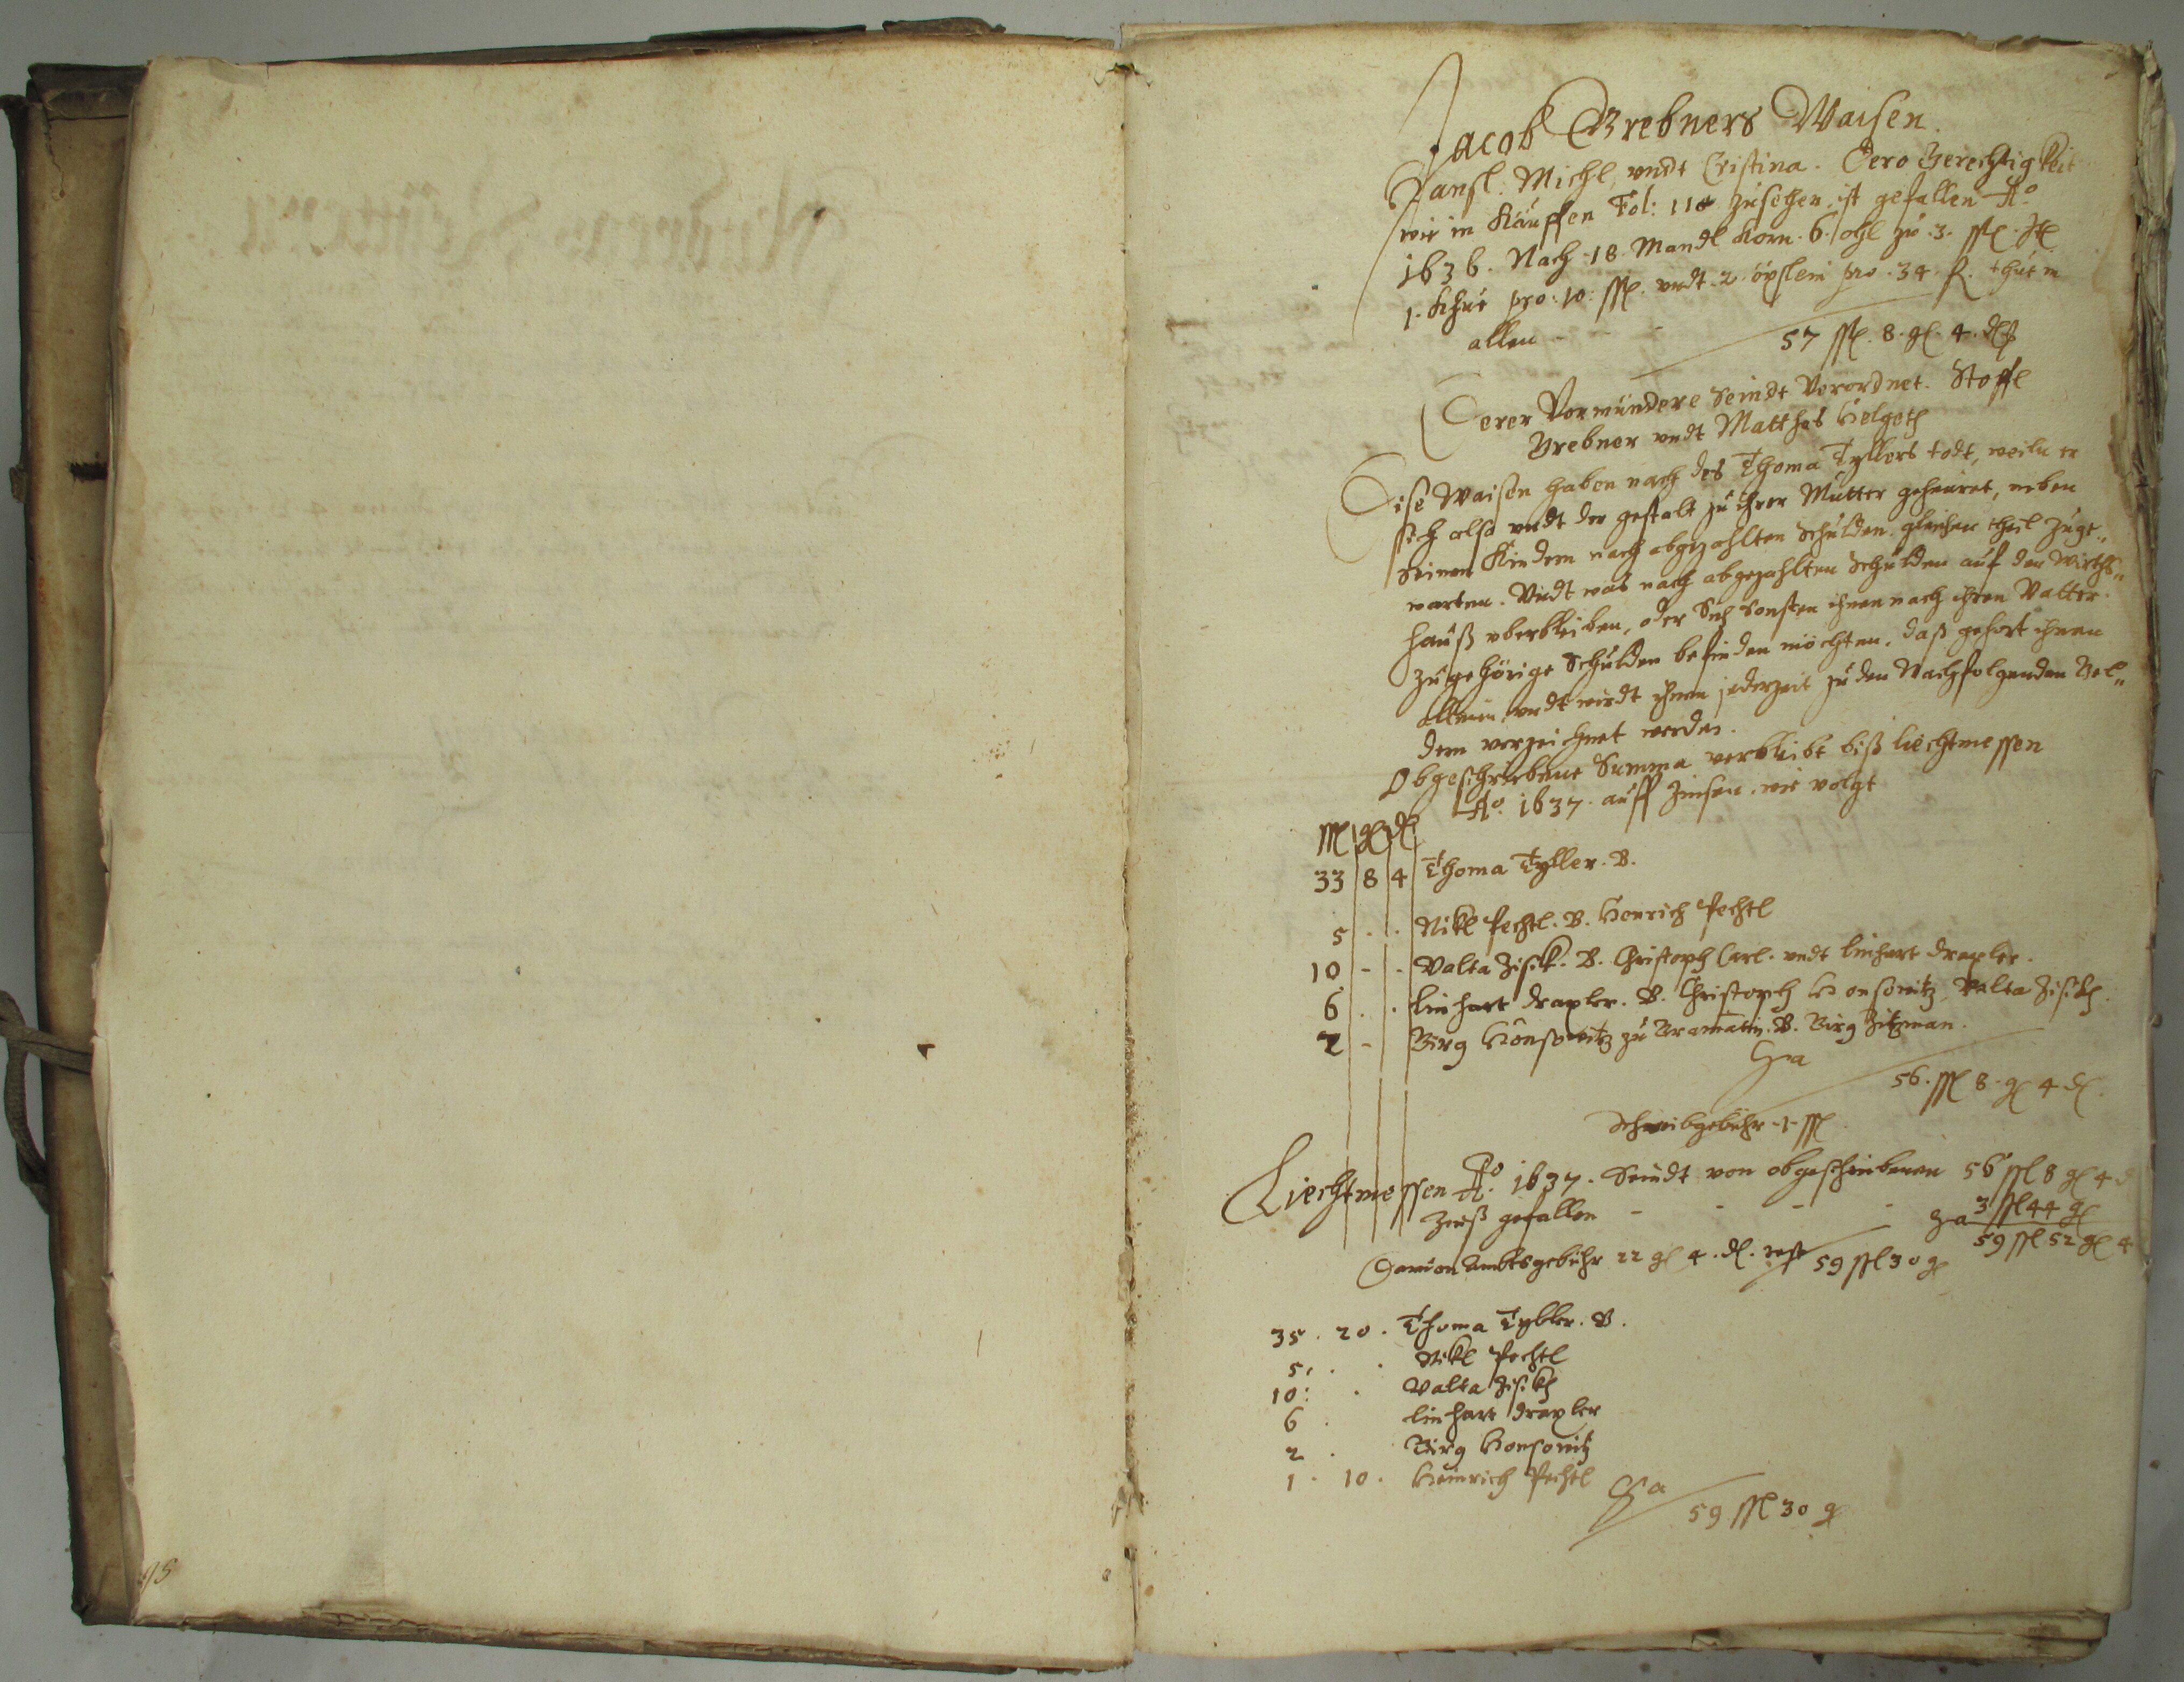 Jacob Grebners Waisen.
Hansl. Michl, vndt Cristina. Dero Gerechtigkeit
wie in Kauffen Fol: 118 zusehen, ist gefallen Ao
1636. Nach 18. Mandl Korn. 6. zu .3. ßl.
1. Khue pro: 10: ßl. vndt .2. öxlein pro .34. ß. thuet in
allen - - - 57 ßl. 8. gl. 4. dl
Derer Vormundere Seindt Verordnet. Stoffl
Grebner vndt Matthes Helgeth
Dise Waisen haben nach des Thoma Tyllers todt, weiln er
sich also vndt der gestalt zu ihrer Mutter geheuret, neben
Seinen Kindern nach abgezahlten Schulden gleichen theil Zuge„
warten. Vndt was nach abgezahlten Schulden auf den Wirths„
hauß vberbleiben, oder Sich Sonsten ihnen nach ihren Vatter
zugehörige Schulden befinden möchten, daß gehort ihnen
allein, vndt wirdt ihnen jederzeit zu den Nachfolgenden Gel„
dern verzeichnet werden.
Obgeschriebene Summa verbleibt biß Liechtmessen
Ao. 1637. auff Zinsen. wie volgt
ßl gl dl
33 8 4 Thoma Tyller. B.
5 . . Nikl Pechtl. B. Henrich Pechtl
10 - - Valta Zischk. B. Christoph Carl. vndt linhart draxler.
6 . . linhart draxler. B. Christoph Honsowitz, Valta Zischkh.
2 - Girg Honsowitz zu Gramatin. B. Girg Zitzman.
Sa
56. ßl 8. gl 4 dl.
Schreibgebühr -1- ßl
Liechtmessen Ao. 1637. Seindt von obgeschriebenen 56 ßl 8 gl 4 d
Zinß gefallen - - - - 3 ßl 44 gl
Sa 59 ßl 52 gl 4
Dauon Ambtsgebühr 22 gl 4. dl. rest 59 ßl 30 gl
35 . 20 . Thoma Tyller. B.
5 . . Nikl Pechtl
10 : . Valta Zischkh
6 . linhart draxler
2 . Girg Honsowitz
1 . 10 . Heinrich Pechtl
Sa
59 ßl 30 gl